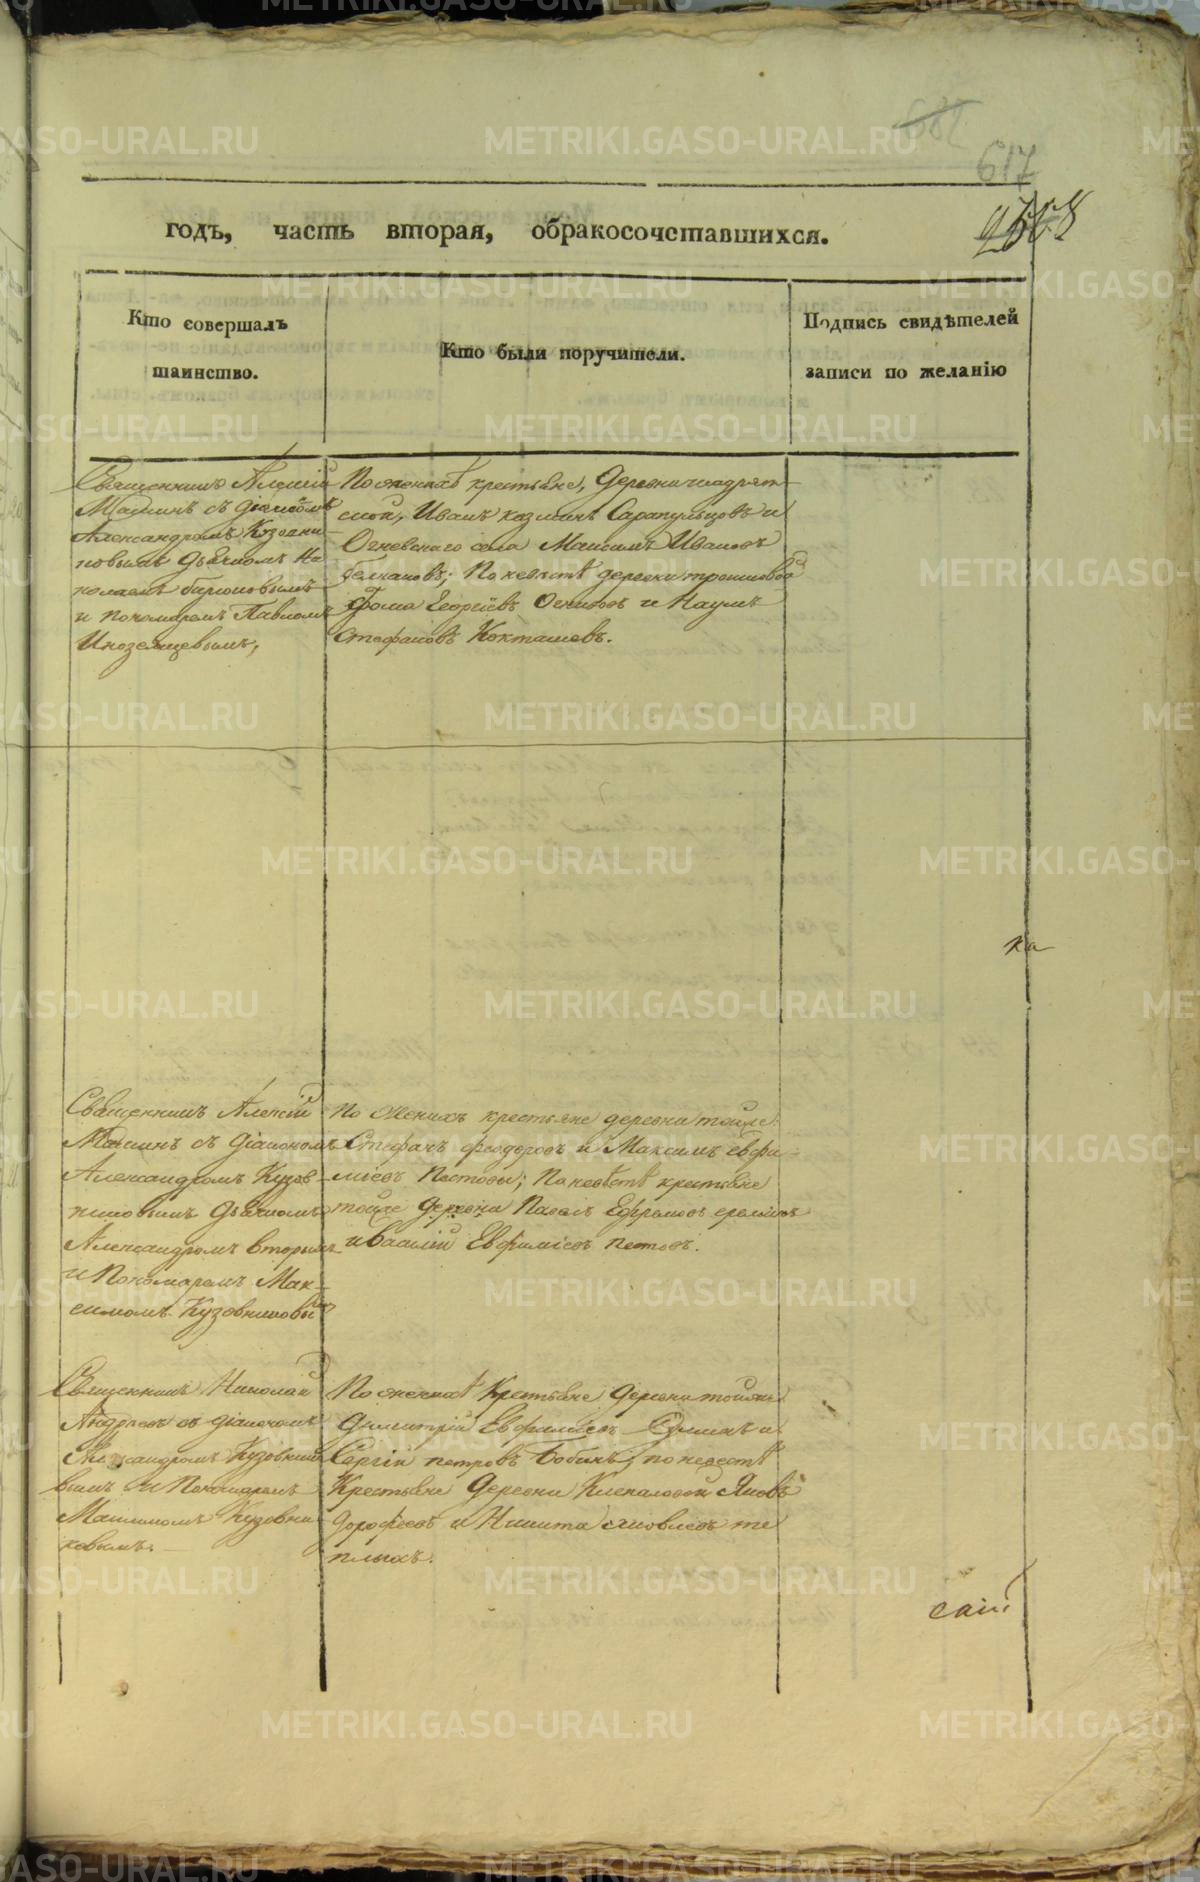 682
617
годъ, часть вторая, обракосочетавшихся.
Кто совершалъ
таинство.
Кто были поручители.
Подпись свидѣтелей
записи по желанію
Священникъ Алексій
Машинъ съ діакономъ
Александромъ Кузовни
ковымъ дьячкомъ Ни
колаемъ
и пономаремъ Павломъ
Иноземцевымъ,
По женихѣ крестьяне, Деревни
Иванъ казминъ Сарапульцовъ и
Огневскаго села Максимъ Ивановъ
По невѣстѣ деревни
Фома Георгіевъ Осиповъ и Наумъ
Стефановъ Кокташевъ.
ка
Священникъ Алексій
Машинъ съ діакономъ
Александромъ Кузов
никовымъ дьячкомъ
Александромъ вторымъ
и Пономаремъ Мак-
симомъ Кузовниковы
По Женихѣ крестьяне деревни тойже
Стефанъ феодоровъ и Максимъ евфи-
міевъ Пестовы; По невѣстѣ крестьяне
тойже деревни Павелъ Ефремовъ
и Василій Евфиміевъ пестовъ.
Священникъ Николай
Андреевъ съ діакономъ
Александромъ Кузовнико
вымъ и Пономаремъ
Максимомъ Кузовни
ковымъ.
По женихѣ Крестьяне Деревни тойже
Димитрій Евфиміевъ и
Сергій петровъ Бобинъ; по невѣстѣ
Крестьяне Деревни Клепаловой Яковъ
дорофеевъ и Никита яковлевъ те
плыхъ.
саш